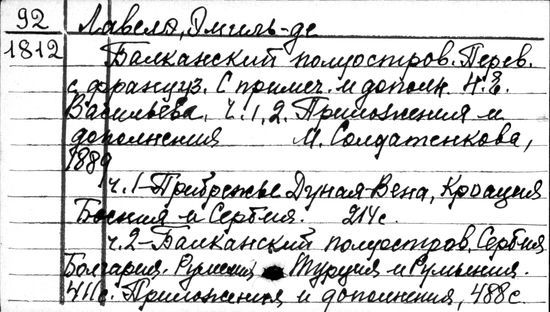 92
1812
Лавелэ, Эмиль-де
Балканский полуостров. Перев.
с француз. С примеч. и дополн. Н.Е.
Васильева, ч. 1, 2. Приложения и
дополнения М. Солдатенкова,
1889
ч.1-Прибрежье Дуная-Вена, Кроация
Босния и Сербия. 214 с.
ч.2-Балканский полуостров. Сербия
Болгария. Румелия Турция и Румыния.
411 с. Приложения и дополнения, 488 с.